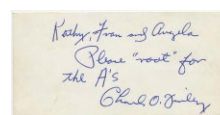 Kathy, Fran and Angela
Please "root" for
the A's
Charles O. Finley